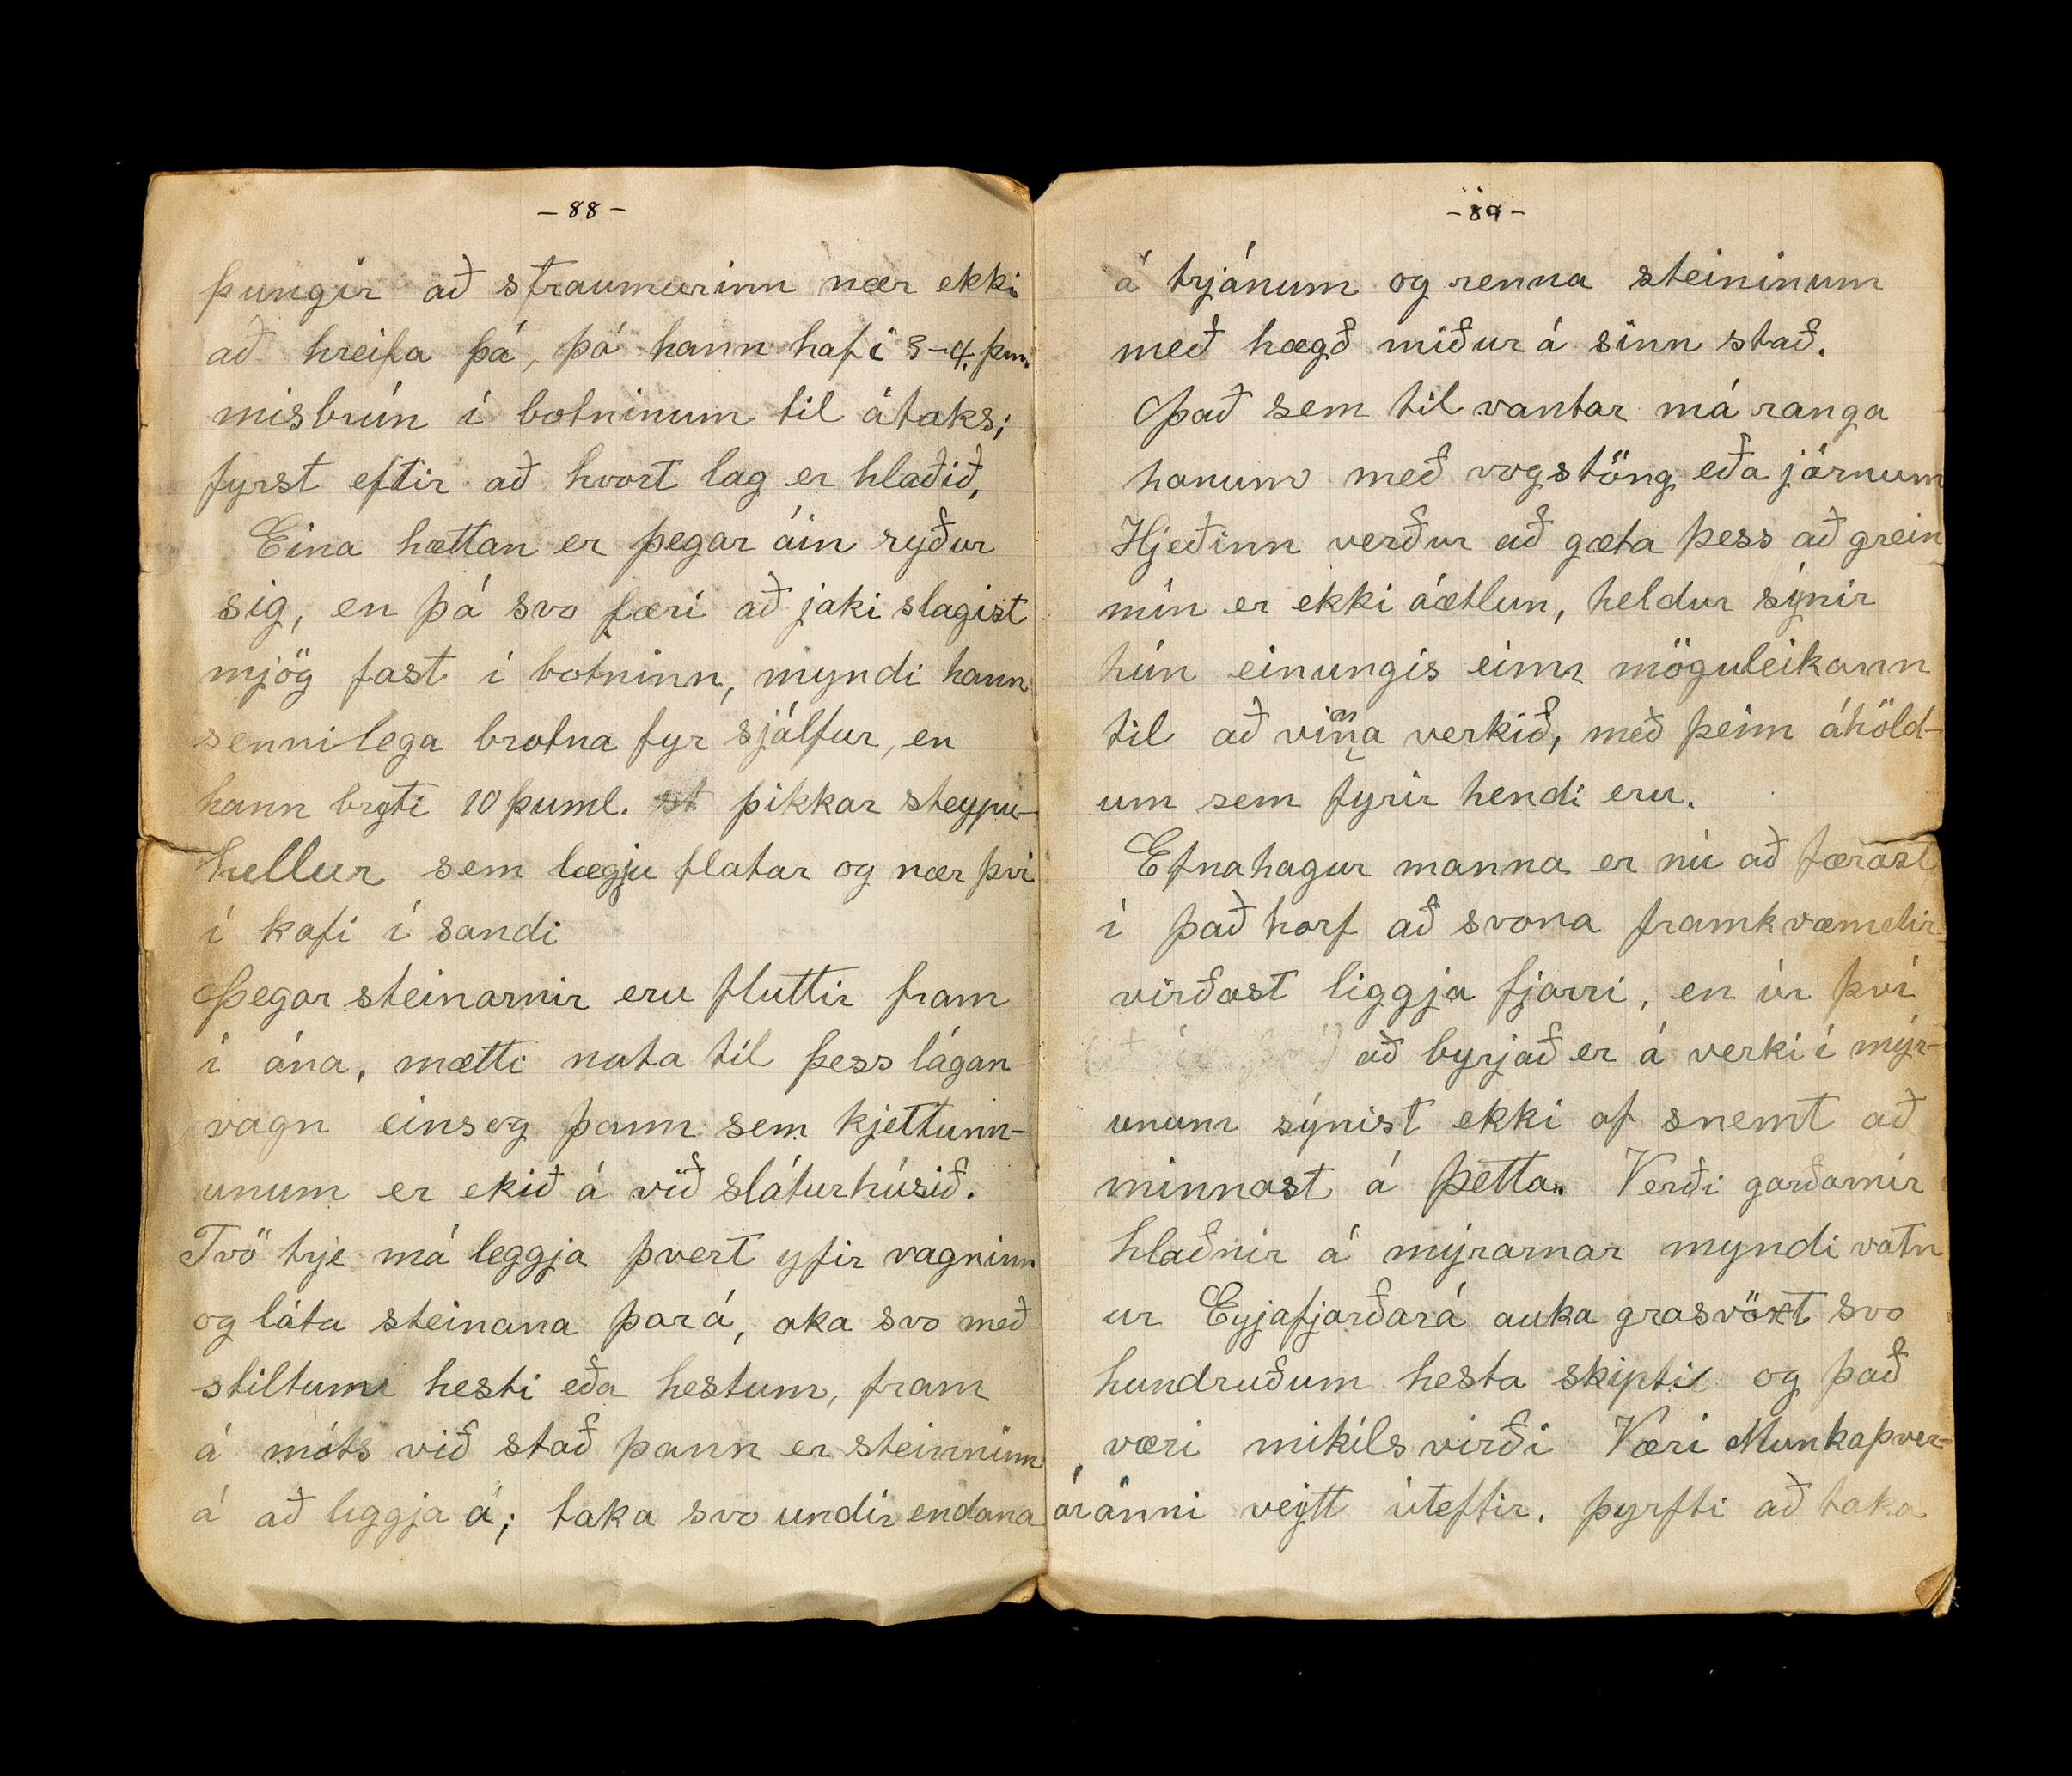 - 88 -
þungir að straumurinn nær ekki
að hreifa þá, þó hann hafi 3-4. þm.
misbrún í botninum til átaks;
fyrst eftir að hvort lag er hlaðið,
Eina hættan er þegar áin ryður
sig, en þá svo færi að jaki slagist
mjög fast í botninn, myndi hann
sennilega brotna fyr sjálfur, en
hann bryti 10 þuml. þikkar steypu-
hellur sem lægju flatar og nær því
í kafi í sandi
Þegar steinarnir eru fluttir fram
í ána, mætti nota til þess lágan
vagn einsog þann sem kjettunn-
unum er ekið á við sláturhúsið.
Tvö trje má leggja þvert yfir vagninn
og láta steinana þará, aka svo með
stiltum hesti eða hestum, fram
á móts við stað þann er steinninn
á að liggja á; taka svo undir endana
- 89 -
á trjánum og renna steininum
með hægð niður á sinn stað.
Það sem til vantar má ranga
honum með vogstöng eða járnum
Hjeðinn verður að gæta þess að grein
mín er ekki áætlun, heldur sýnir
hún einungis einn möguleikann
til að vinna verkið, með þeim áhöld-
um sem fyrir hendi eru.
Efnahagur manna er nú að færast
í það horf að svona framkvæmdir
virðast liggja fjarri, en úr því
að byrjað er á verki í mýr-
unum sýnist ekki of snemt að
minnast á þetta. Verði garðarnir
hlaðnir á mýrarnar myndi vatn
ur Eyjafjarðará auka grasvöxt svo
hundruðum hesta skipti og það
væri mikils virði Væri Munkaþver-
áránni veytt úteftir. þyrfti að taka